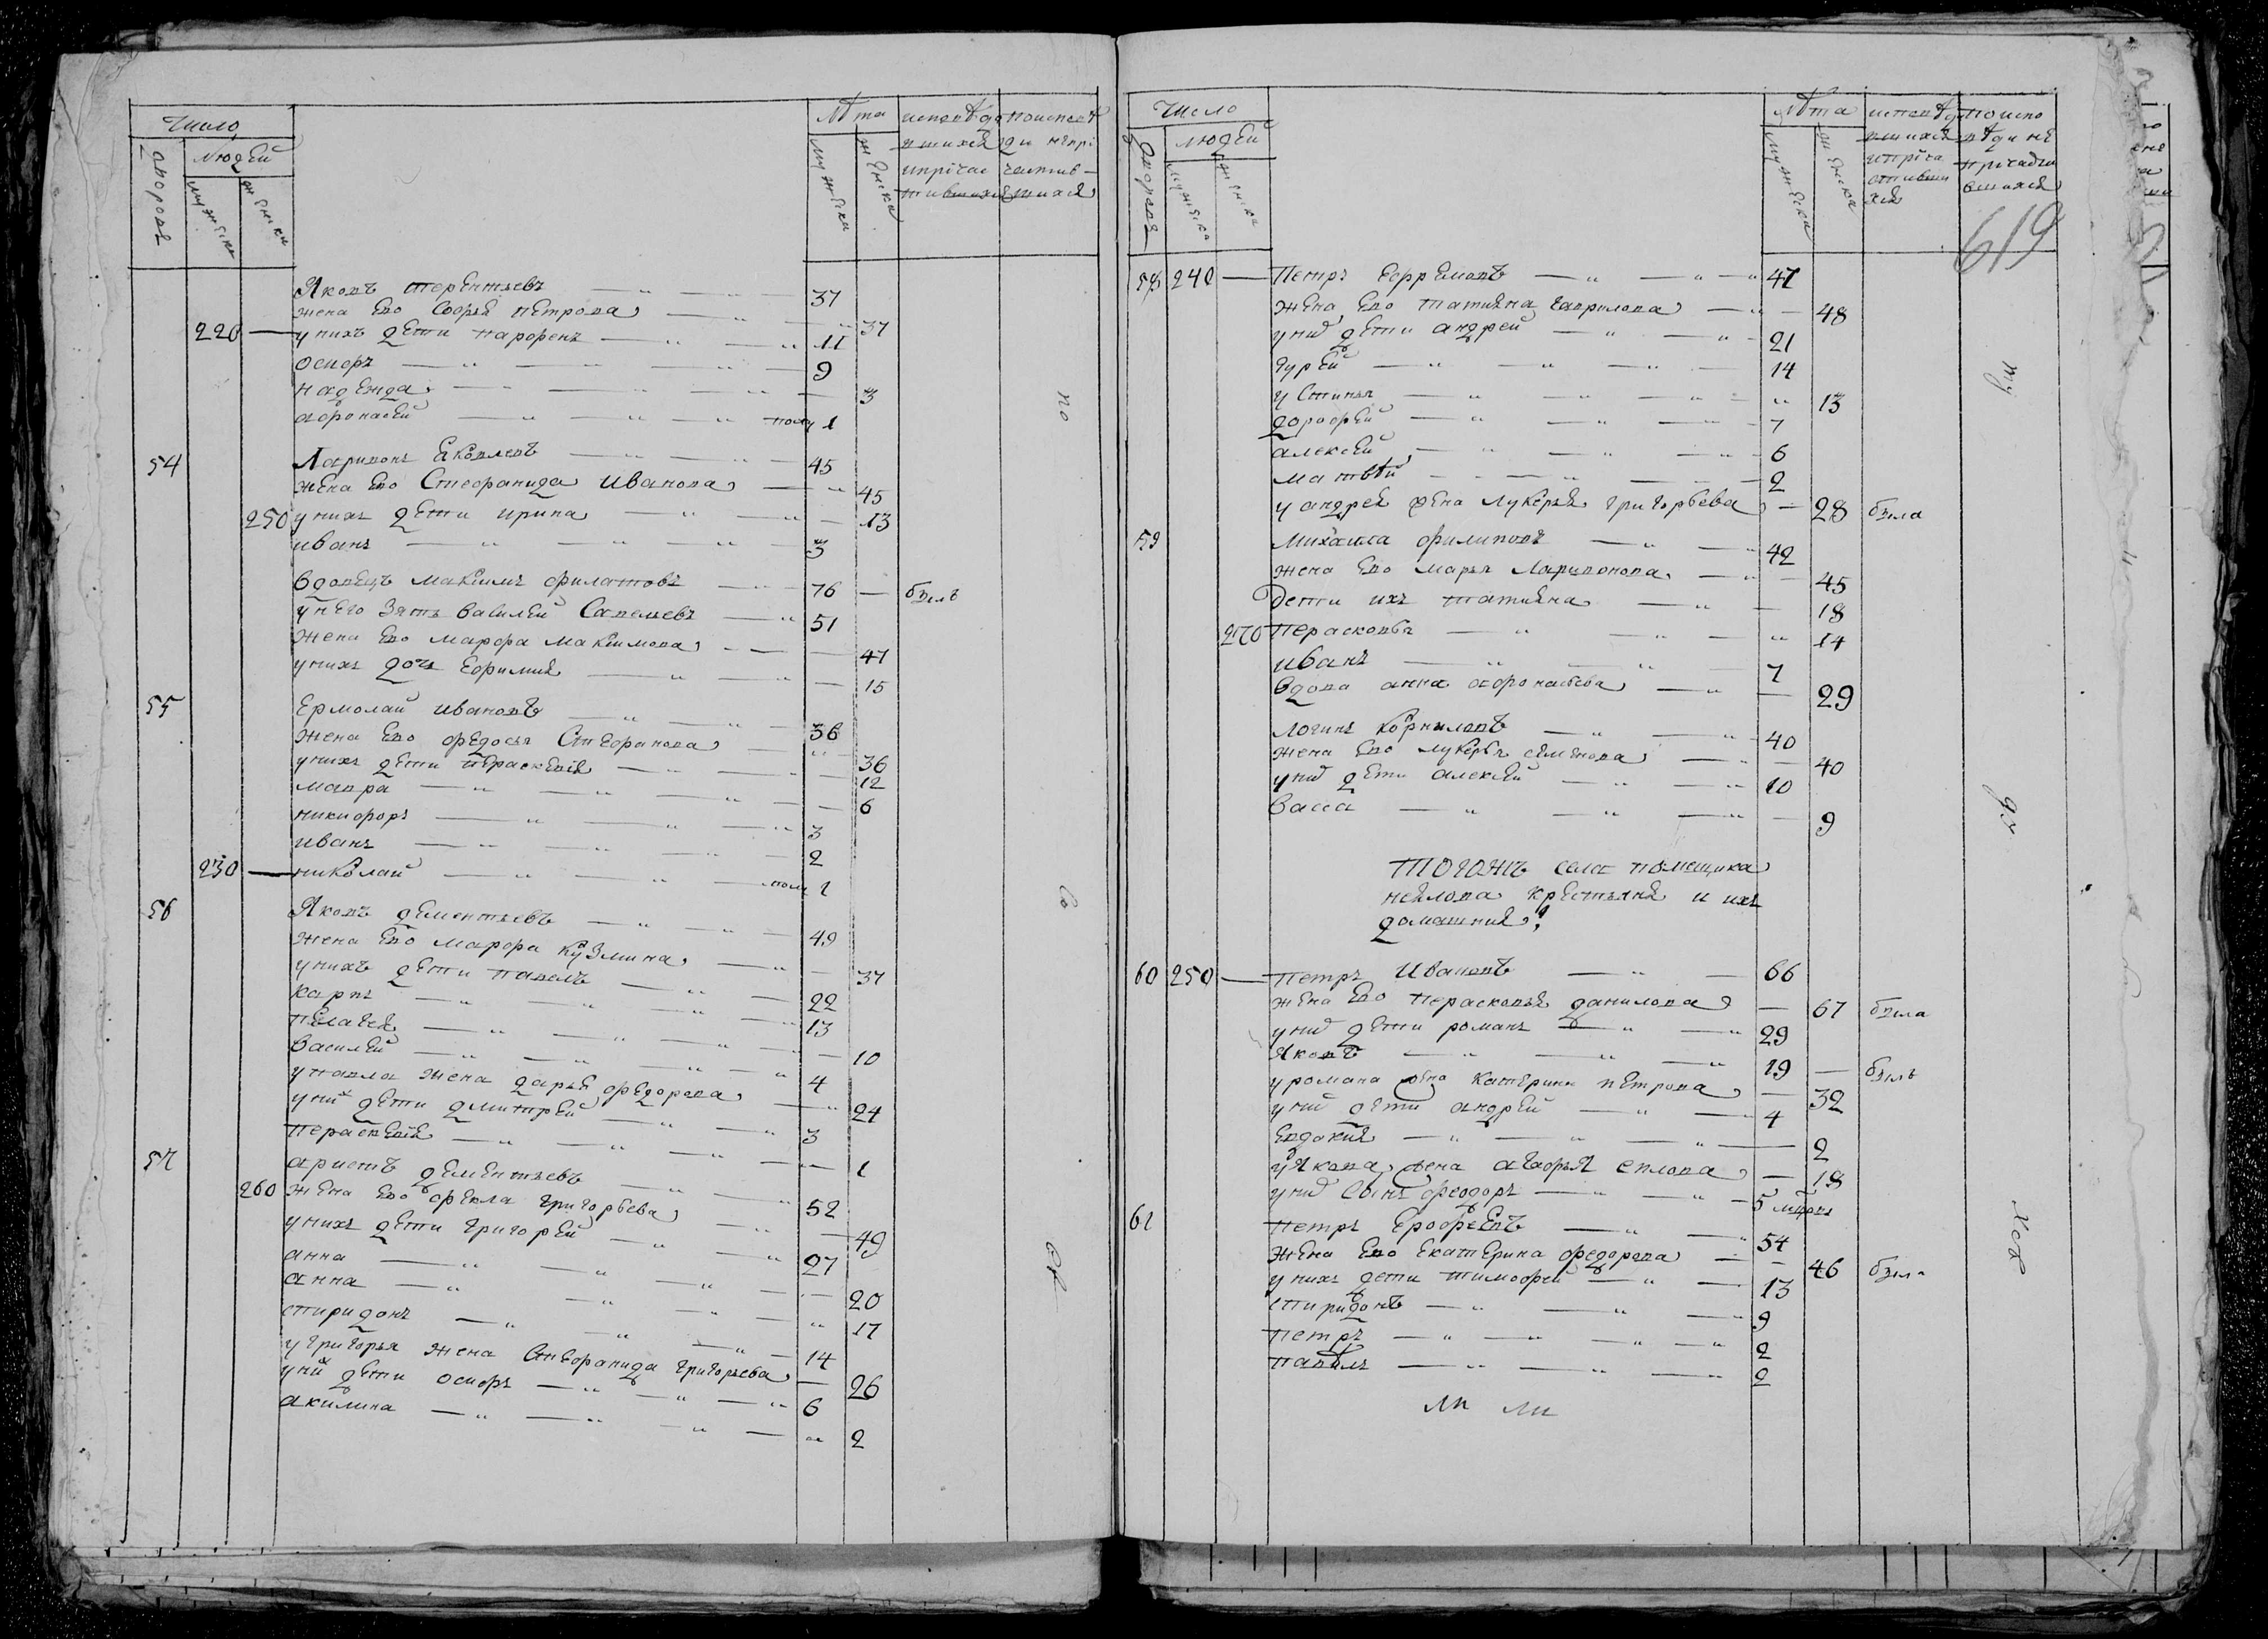 Число
Людей
дворовъ
мужеска
женска
Лѣта
мужеска
женска
исповѣдо
вшихся
ипричас
тившихся
поисповѣ
ди непри
частив
шихся
Яковъ терентьевъ 37
жена ево Софья петрова 37
220 унихъ дети парфенъ 11
осипъ 9
надежда 3
афонасей полу 1
54 Ларивонъ Яковлевъ 45
жена ево Стефанида Иванова 45
250 унихъ дети ирина 13
иванъ 3
вдовецъ максимъ филатовъ 76 — былъ
унего зять василей Савельевъ 51
жена ево марфа максимова 47
унихъ дочь Ефимия 15
55 Ермолай ивановъ 36
жена ево федосья Стефанова 36
унихъ дети пераскевия 12
мавра 6
никифоръ 3
иванъ 2
230 николай полу 1
56 Яковъ дементьевъ 49
жена ево марфа кузмина 37
унихъ дети павелъ 22
карпъ 13
пелагея 10
василей 4
упавла жена дарья федорова 24
уний дети дмитрей 3
пераскевия 1
57 аристъ дементьевъ 52
260 жена ево фекла григорьева 49
унихъ дети григорей 27
анна 20
анна 17
спиридонъ 14
угригорья жена Стефанида григорьева 26
уний дети осипъ 6
акилина 2
по
во
Число
Людей
дворовъ
мужеска
женска
Лѣта
мужеска
женска
исповѣдо
вшихся
иприча
стивши
хся
поиспо
вѣди не
причасти
вшихся
619
58 240 Петръ Ефремовъ 47
жена ево татияна гаврилова 48
уних дети андрей 21
гурей 14
устинья 13
дорофей 7
алексей 6
матвѣй 2
уандрея жена лукерья григорьева 28 была
59 Михаила филиповъ 42
жена ево марья Ларивонова 45
Дети ихъ татияна 18
270 Перасковья 14
иванъ 7
вдова анна афонасьева 29
логинъ корниловъ 40
жена ево лукерья семенова 40
уних дети алексей 10
васса 9
ТОГОЖЪ села помещика
неелова крестьяне и ихъ
домашния
60 250 петръ Ивановъ 66
жена ево перасковья данилова 67 была
уних дети романъ 29
Яковъ 19 — былъ
уромана жена катерина петрова 32
уний дети андрей 4
Евдокия 2
уЯкова жена агафья 18
уних сынъ феодоръ 5
61 петръ Ерофеевъ 54
жена ево екатерина федорова 46 была
унихъ дети тимофей 13
спиридонъ 9
петръ 2
павелъ 2
ту
до